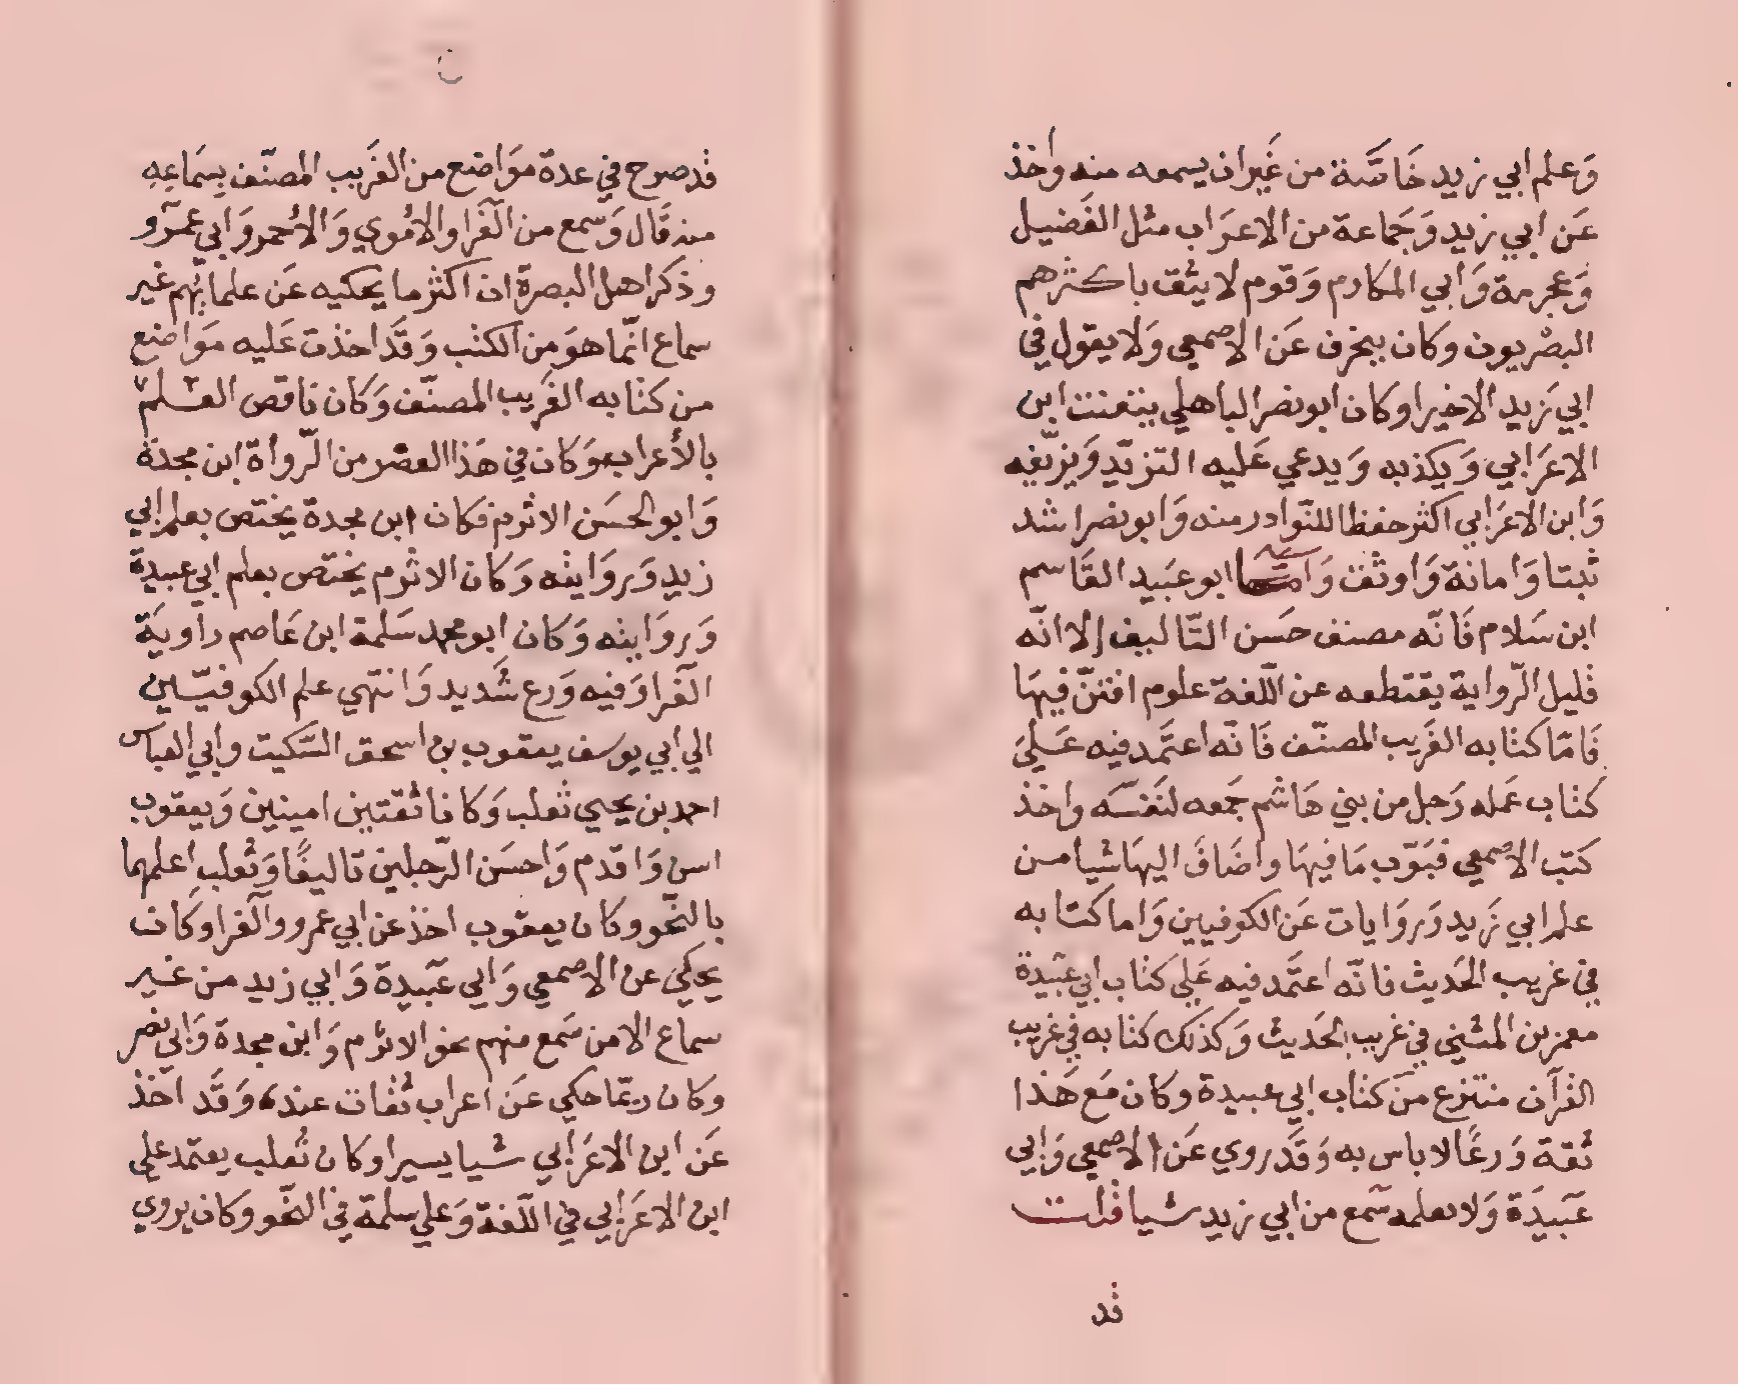 وَعلم ابي زيد خَاصَّة من غَير ان يسمعه منه واخذ
عَن ابي زيد وَجَماعة من الاعرَاب مثل الفَضيل
وَعجرمة وَابي المكارم وَقوم لا يثق باكثرهم
البصْريون وكان ينحرف عَن الاصمعي وَلا يقول في
ابي زَيد الاخيرا وكان ابو نصر الباهلي يتعنت ابن
الاعرَابي وَيكذبه وَيدعي عَليه التزيّد وَيزيّفه
وَابن الاعرَابي اكثر حفظا للنّوادر منه وَابو نصر اشد
ثبتا وَامانة وَاوثق وَامّا ابو عبَيد القَاسم
ابن سَلام فَانّه مصنف حسَن التّاليف إلا انّه
قليل الرّواية يقتطعه عن اللّغة علوم افتنّ فيهَا
فَامّا كتابه الغَريب المصنّف فَانّه اعتمَد فيه عَليَ
كتاب عَمله رَجل من بني هَاشم جَمعه لنَفسَه واخذ
كتب الاصمعي فبَوّب مَا فيهَا واضَافَ اليهَا شيا من
علم ابي زَيد وَروَايات عَن الكوفيين وَاما كتابه
في غريب الحَديث فانّه اعتمَد فيه عَلي كتاب ابي عبَيدة
معمر بن المثني في غريب الحَديث وَكذلك كتابه في غريب
القرآن منتزع منَ كتاب ابي عبيدة وكان مَع هَذا
ثقة وَرعًا لا باس به وَقدَ روي عَن الاصمعي وَابي
عَبيدَة وَلا نعلمه سَمع من ابي زيد شيا قلت
قد
قد صرح في عدة موَاضع من الغَريب المصنّف بِسَماعِهِ
منه قَال وَسمع من الفَرا والامُوي وَالاحُمر وَابي عَمرو
وذكر اهل البصرة ان اكثر ما يحكيه عَن علمائهم غير
سماع انّما هوَ من الكتب وَقَد اخذت عَليه مَوَاضع
من كتابه الغَريب المصنّف وَكان ناقص العلم
بالأعراب وَكان في هَذا العصْر من الرّواة ابن نجدة
وَابو الحسَن الاثرم فكان ابن نجدة يختص بعلم ابي
زيد وَروَايته وَكان الاثرم يختَص بعلم ابي عبيدة
وَروَايته وَكان ابو محمد سَلمة ابن عَاصم راويَة
الفَرا وَفيه وَرع شَديد وَانتهي علم الكوفيّين
الي ابي يوسف يعقوب بن اسحق السّكيت وابي العباس
احمد بن يحيي ثعلب وَكانا ثقتين امينين وَيعقوب
اسن وَاقدم وَاحسَن الرّجلين تاليفًا وَثعلب اعلمهما
بالنّحو وكان يعقوب اخذ عن ابي عمرو والفرا وكَان
يحكي عن الاصمعي وَابي عَبيدة وَابي زيد من غَير
سماع الا من سَمع منهم نحو الاثرم وَابن نجدة وَابي نصر
وكان ربّما حكي عَن اعراب ثقات عنده وَقَد اخذ
عَن ابن الاعرَابي شيا يسيرا وكان ثعلب يعتمد علي
ابن الاعرَابي في اللّغة وَعلي سلمة في النّحو وكان يروي